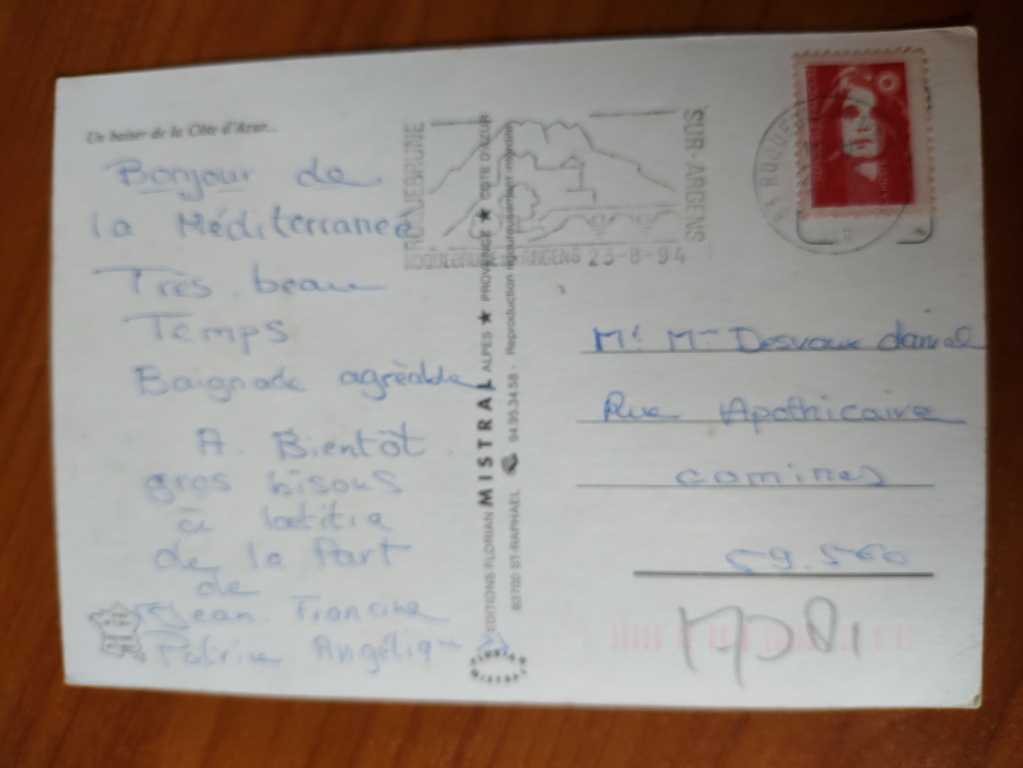 Un baiser de la Côte d'Azur...
Bonjour de
la Méditerranée
Très beau
Temps
Baignade agréable
A Bientôt
gros bisous
à lætitia
de la Part
de
Jean Francine
Patrice Angéliq
EDITIONS FLORIAN MISTRAL ALPES ★ PROVENCE ★ COTE D'AZUR
83700 ST-RAPHAEL 94.95.34.58 - Reproduction rigoureusement interdite
FLORIAN
MISTRAL
ROQUEBRUNE
SUR-ARGENS
ROQUEBRUNE ARGENS 23-8-94
Mr Mme Desvaux danial
Rue Apothicaire
comines
59.560